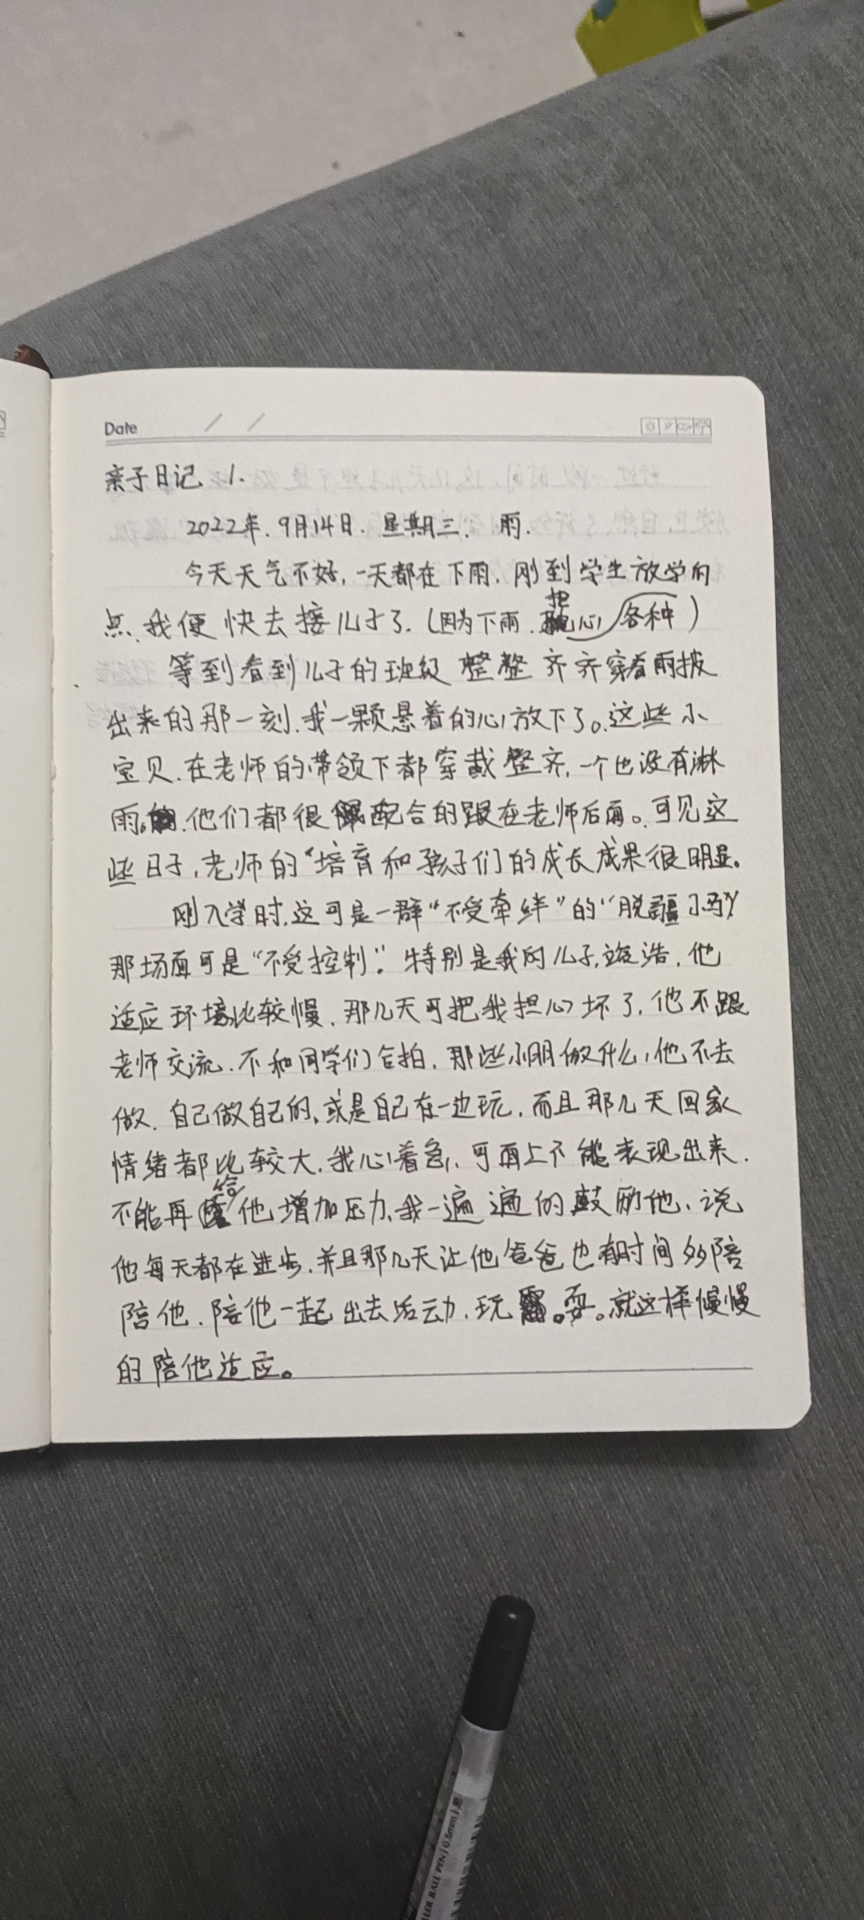 Date / /
亲子日记 1.
2022年.9月14日.星期三. 雨.
今天天气不好,一天都在下雨.刚到学生放学的
点.我便快去接儿子了.(因为下雨.担心各种)
等到看到儿子的班级整整齐齐穿着雨披
出来的那一刻.我一颗悬着的心放下了。这些小
宝贝.在老师的带领下都穿戴整齐,一个也没有淋
雨。他们都很配合的跟在老师后面。可见这
些日子,老师的“培育和孩子们的成长成果很明显.
刚入学时.这可是一群“不受牵绊”的“脱疆小马”
那场面可是“不受控制”.特别是我的儿子.浩,他
适应环境比较慢.那几天可把我担心坏了,他不跟
老师交流.不和同学们合拍.那些小朋做什么,他不去
做.自己做自己的、或是自己在一边玩,而且那几天回家
情绪都比较大.我心着急,可面上不能表现出来.
不能再给他增加压力、我一遍遍的鼓励他、说
他每天都在进步.并且那几天让他爸爸也有时间多陪
陪他.陪他一起出去活动,玩。耍。就这样慢慢
的陪他适应。
LER BALL PEN 0.5mm 黑